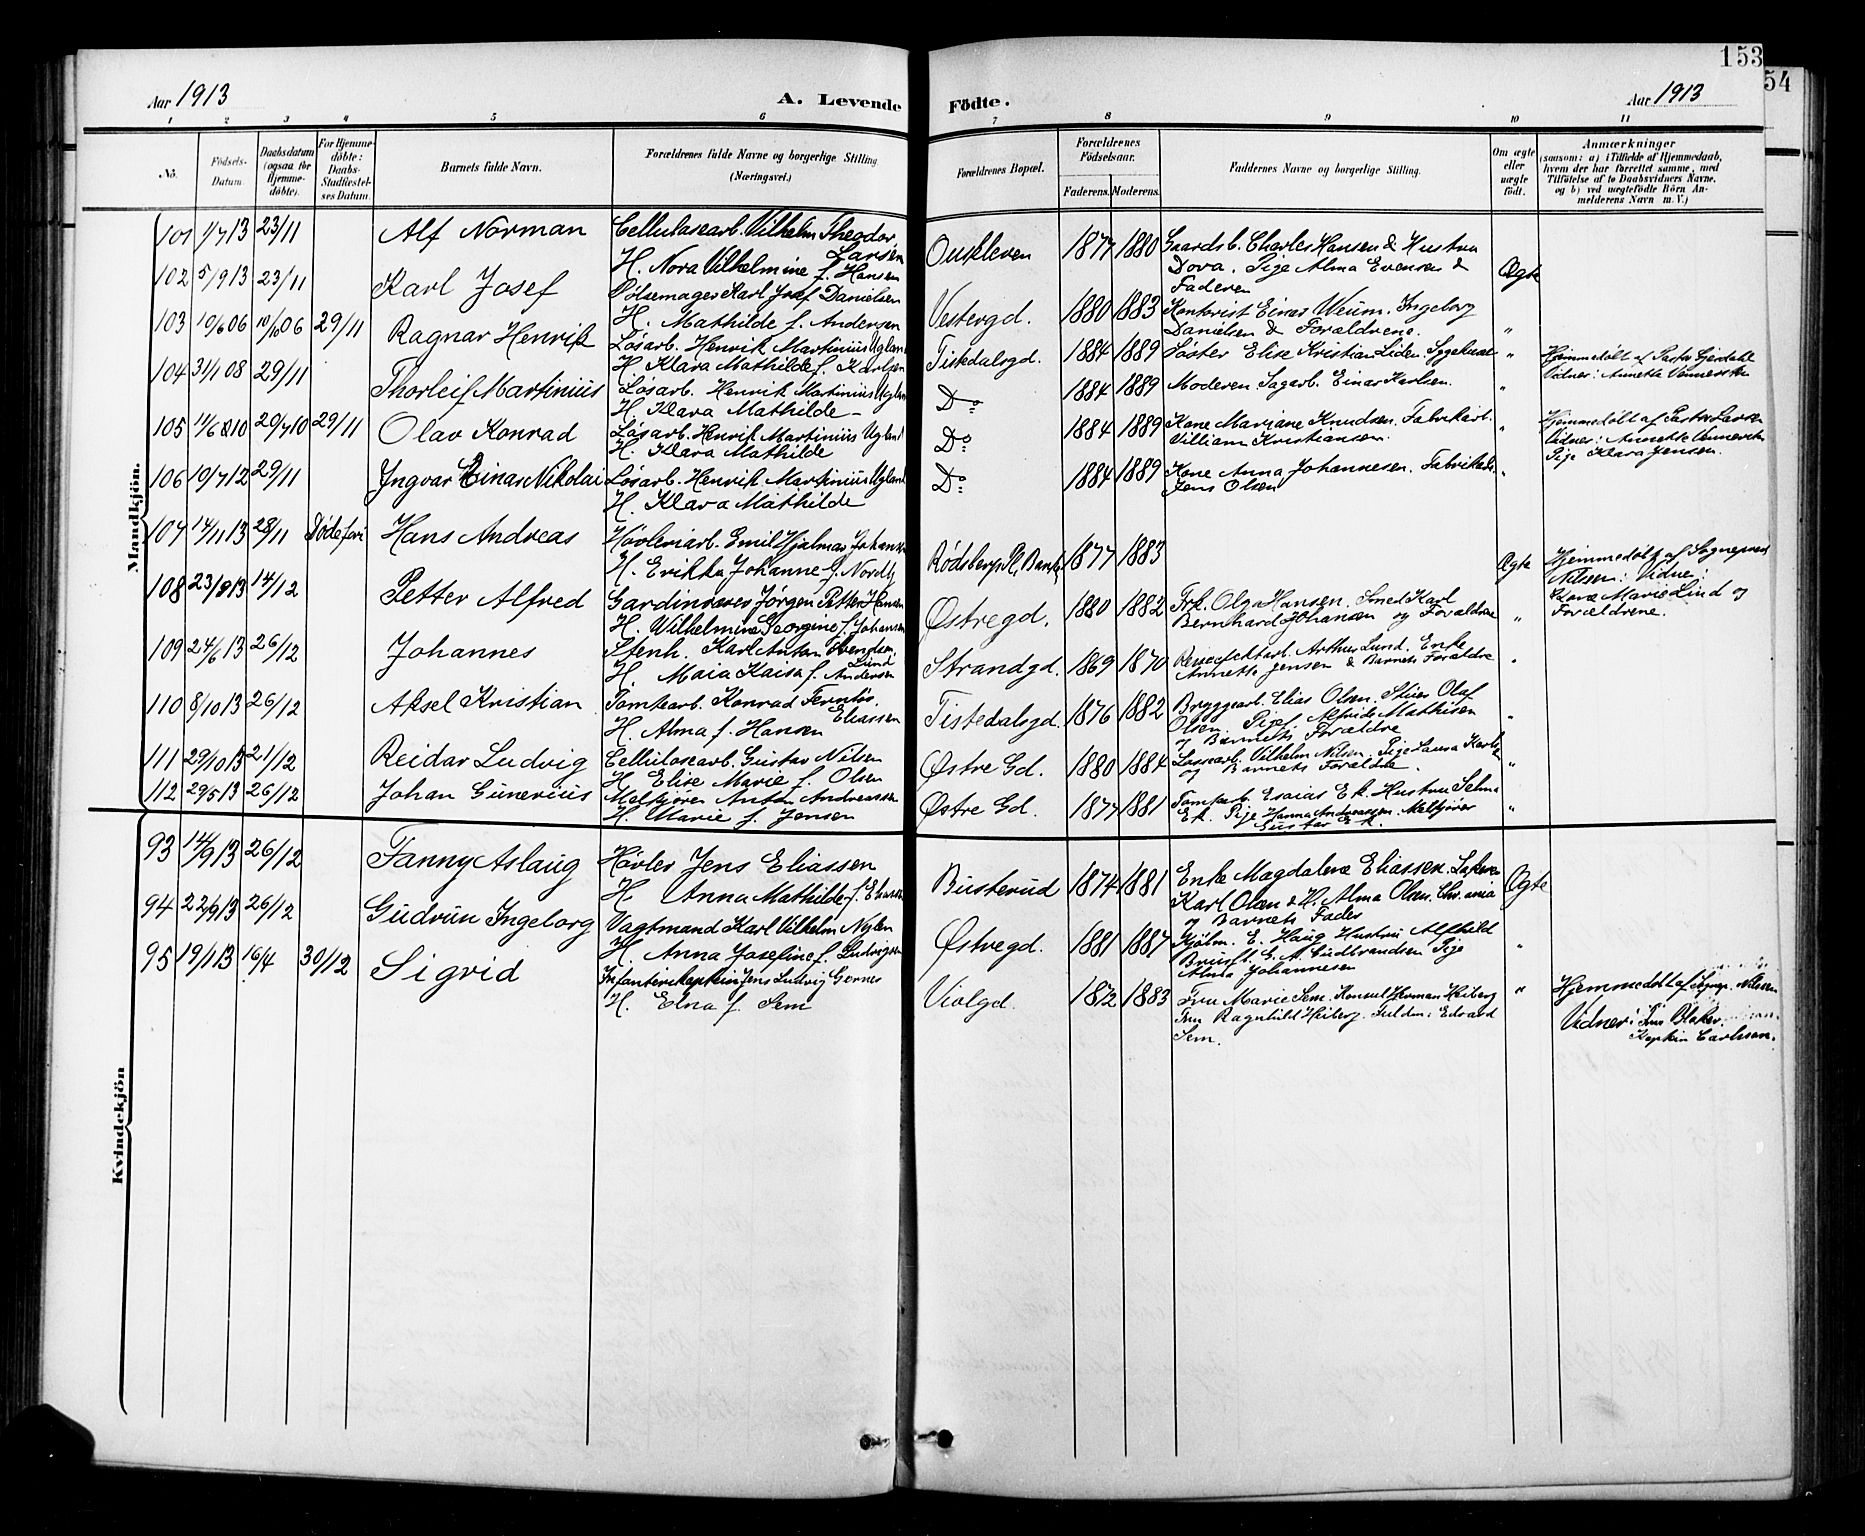 153
54
Aar 1913
A. Levende
Födte.
Aar 1913
1 2 3 4 5 6 7 8 9 10 11
No.
Födsels-Datum.
Daabsdatum (ogsaa for Hjemmedöbte).
For Hjemmedöbte: Daabs-Stadfæstelses Datum.
Barnets fulde Navn.
Forældrenes fulde Navne og borgerlige Stilling (Næringsvei.)
Forældrenes Bopæl.
Forældrenes Födselsaar.
Faderens. Moderens.
Faddernes Navne og borgerlige Stilling.
Om ægte eller uægte födt.
Anmærkninger
(saasom: a) i Tilfælde af Hjemmedaab, hvem der har forrettet samme, med Tilföielse af to Daabsvidners Navne, og b) ved uægtefödte Börn Anmelderens Navn m. V.)
Mandkjön.
101 1/7 13 23/11 Alf Norman Cellulosearb. Vilhelm Theodor Larsen
H. Nora Vilhelmine f. Hansen
1877 1880 Gaardsb. Charles Hansen & Hustru
Dova. Pige Alma Evensen &
Faderen
Ægte
102 5/9 13 23/11 Karl Josef Pølsemager Karl Josef Danielsen
H. Mathilde f. Andersen
Vestergd. 1880 1883 Kontorist Einar Weum. Ingeborg
Danielsen & Forældrene. "
103 10/6 06 10/10 06 29/11 Ragnar Henrik Løsarb. Henrik Martinius Ugland
H. Klara Mathilde f. Karlsen
Tistedalsgd. 1884 1889 Søster Elise Kristian Liden. "
Hjemmedøbt af Pastor
Vidner: Annette
104 31/1 08 29/11 Thorleif Martinius Løsarb. Henrik Martinius Ugland
H. Klara Mathilde –
Do 1884 1889 Moderen. Sagarb. Einar Karlsen. "
105 14/6 10 29/7 10 29/11 Olav Konrad Løsarb. Henrik Martinius Ugland
H. Klara Mathilde
Do 1884 1889 Kone Mariane Knudsen. Fabrikarb.
William Kristiansen. "
Hjemmedøbt af Pastor Larsen
Vidner: Annette
Pige Klara Jensen.
106 19/7 12 29/11 Ingvar Einar Nikolai Løsarb. Henrik Martinius Ugland
H. Klara Mathilde
Do 1884 1889 Kone Anna Johannesen. Fabrikarb.
Jens Olsen "
107 14/11 13 28/11 Døde forv Hans Andreas Høvleriarb. Emil Hjalmar Johansen
H. Erikka Johanne f. Nordli
Rødsberg Pl. 1877 1883 Ægte
Hjemmedøbt af Sognepræst
Nilsen: Vidne:
Marie Lind og
Forældrene.
108 23/8 13 14/12 Petter Alfred Jørgen Petter Hansen
H. Wilhelmine Georgine f. Johansen
Østregd. 1880 1882 Frk. Olga Hansen. Smed Karl
Bernhard Johansen og Forældrene "
109 24/6 13 26/12 Johannes Stenh. Karl Anton Lund
H. Maia Kaisa f. Andersen
Strandgd. 1869 1870 Arthur Lund. Enke
Annette Jensen & Barnets Forældre "
110 8/10 13 26/12 Aksel Kristian Tomtearb. Konrad Eliassen
H. Alma f. Hansen
Tistedalsgd. 1876 1882 Bryggearb. Elias Olsen. Olaf
Olsen. Pige Alfrida Mathisen
og Barnets Forældre "
111 29/10 13 21/12 Reidar Ludvig Cellulosearb. Gustav Nilsen
H Elise Marie f. Olsen
Østre Gd. 1880 1884 Vilhelm Nilsen. Pige Laura Karlsen
og Barnets Forældre. "
112 29/5 13 26/12 Johan Gunerius Meltjører Anton Andreassen
H. Marie f. Jensen
Østre Gd. 1877 1881 Tomtearb. Esaias Ek. Hustru Selma
Ek. Pige Hanna Andreassen. Meltjører
Gustav Ek. "
Kvindekjön
93 14/9 13 26/12 Fanny Aslaug Høvler Jens Eliassen
H Anna Mathilde f. Eliassen
Busterud 1874 1881 Enke Magdalene Eliassen.
Karl Olsen & H. Alma Olsen. Chr.ania
og Barnets Fader
Ægte
94 22/9 13 26/12 Gudrun Ingeborg Vagtmand Karl Vilhelm Nylen
H. Anna Josefine f. Ludvigsen
Østregd. 1881 1887 Kjøbm. E. Haug Hustru Alfhild
Brusf. G. A. Gudbrandsen Pige
Alma Johannesen "
95 19/1 13 16/4 30/12 Sigrid Infanterikaptein Jens Ludvig Gerner
H. Elna f. Sem
Violgd. 1872 1883 Fru Marie Sem. Konsul Herman Heiberg
Fru Ragnhild Heiberg. Fuldm: Edvard
Sem. "
Hjemmedøbt af Sognep. Nilssen
Vidner: Fru
Kaptein Carlsson.